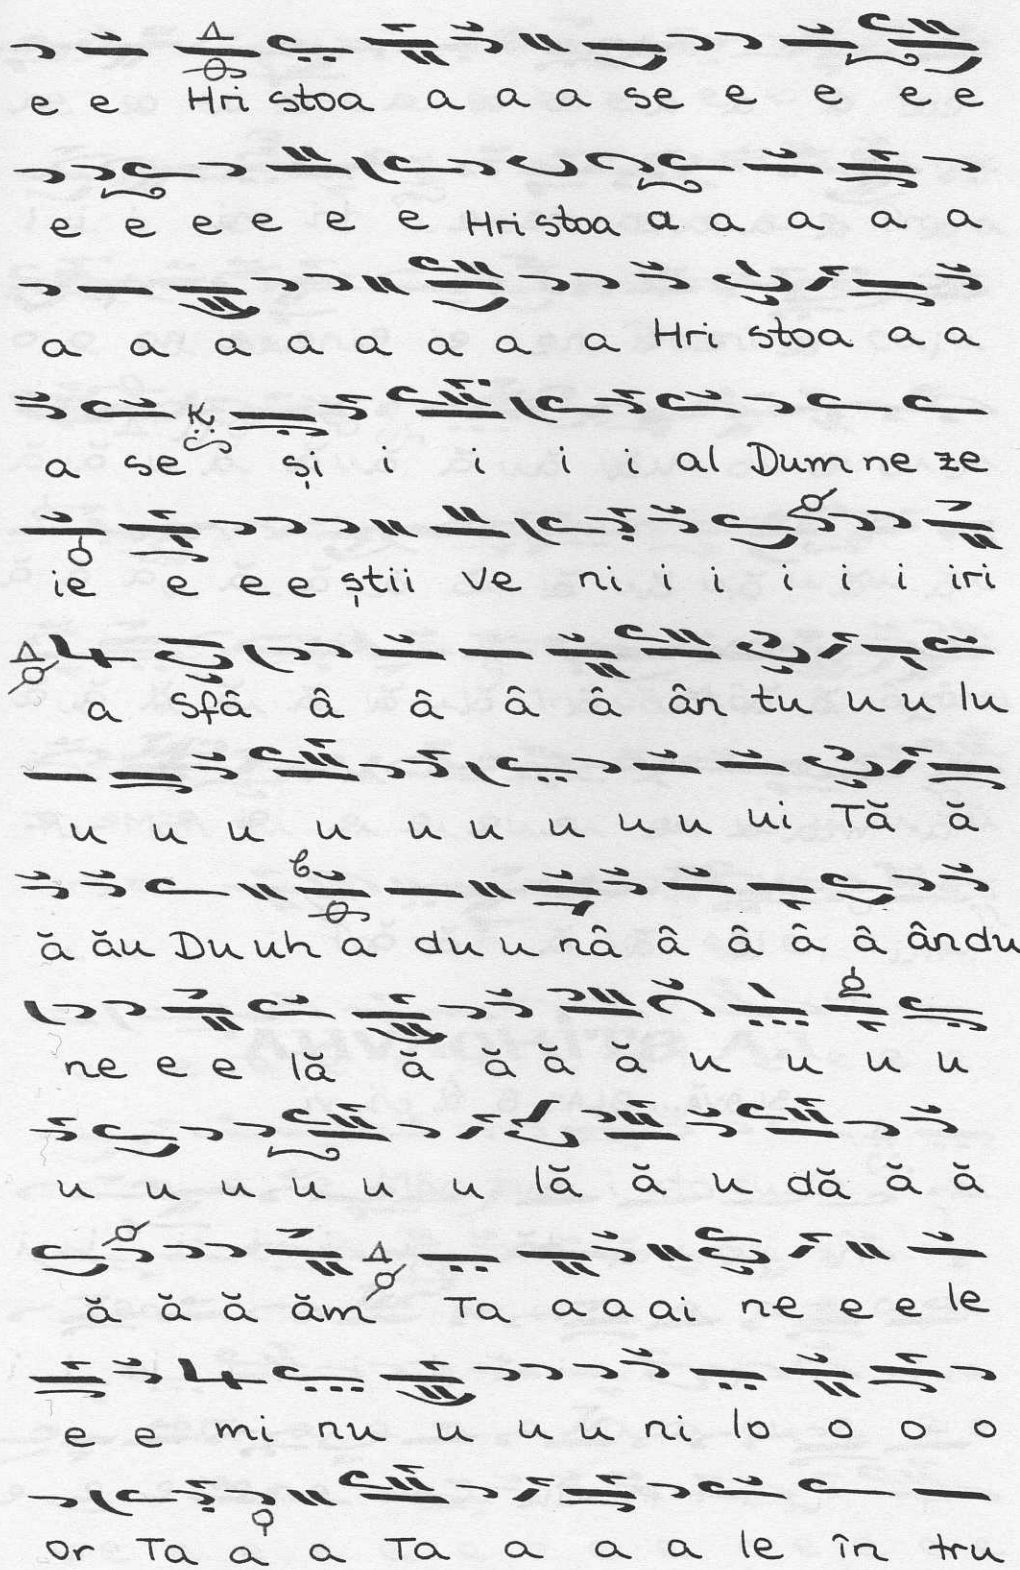 e e Hri stoa a a a se e e e e
e e e e e e Hri stoa a a a a a
a a a a a a a a Hri stoa a a
a se și i i i i al Dum ne ze
ie e e e știi ve ni i i i i i iri
a Sfâ â â â â ân tu u u lu
u u u u u u u u u ui Tă ă
ă ău Du uh a du u nâ â â â â ân du
ne e e lă ă ă ă ă u u u u
u u u u u u lă ă u dă ă ă
ă ă ă ăm Ta a a ai ne e e le
e e mi nu u u u ni lo o o o
or Ta a a Ta a a a le în tru